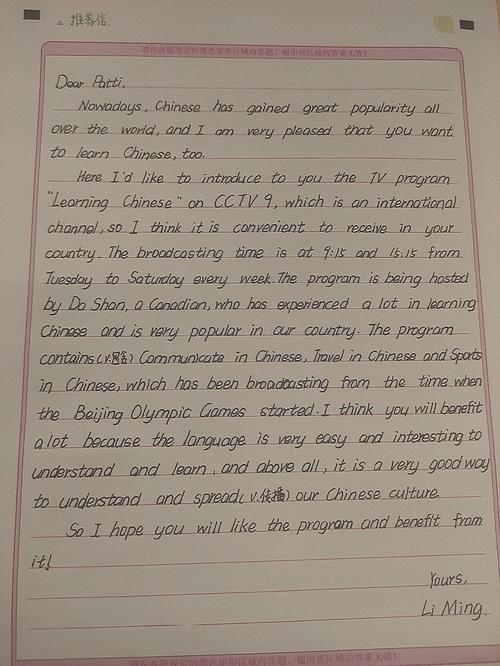 △ 推荐信.
请在各题规定的黑色矩形区域内答题，超出该区域的答案无效！
Dear Patti,
Nowadays, Chinese has gained great popularity all
over the world, and I am very pleased that you want
to learn Chinese, too.
Here I'd like to introduce to you the TV program
"Learning Chinese" on CCTV 9, which is an international
channel, so I think it is convenient to receive in your
country. The broadcasting time is at 9:15 and 15:15 from
Tuesday to Saturday every week. The program is being hosted
by Da Shan, a Canadian, who has experienced a lot in learning
Chinese and is very popular in our country. The program
contains (v.包含) Communicate in Chinese, Travel in Chinese and Sports
in Chinese, which has been broadcasting from the time when
the Beijing Olympic Games started. I think you will benefit
a lot because the language is very easy and interesting to
understand and learn, and above all, it is a very good way
to understand and spread (v.传播) our Chinese culture.
So I hope you will like the program and benefit from
it!
Yours,
Li Ming
请在各题规定的黑色矩形区域内答题，超出该区域的答案无效！